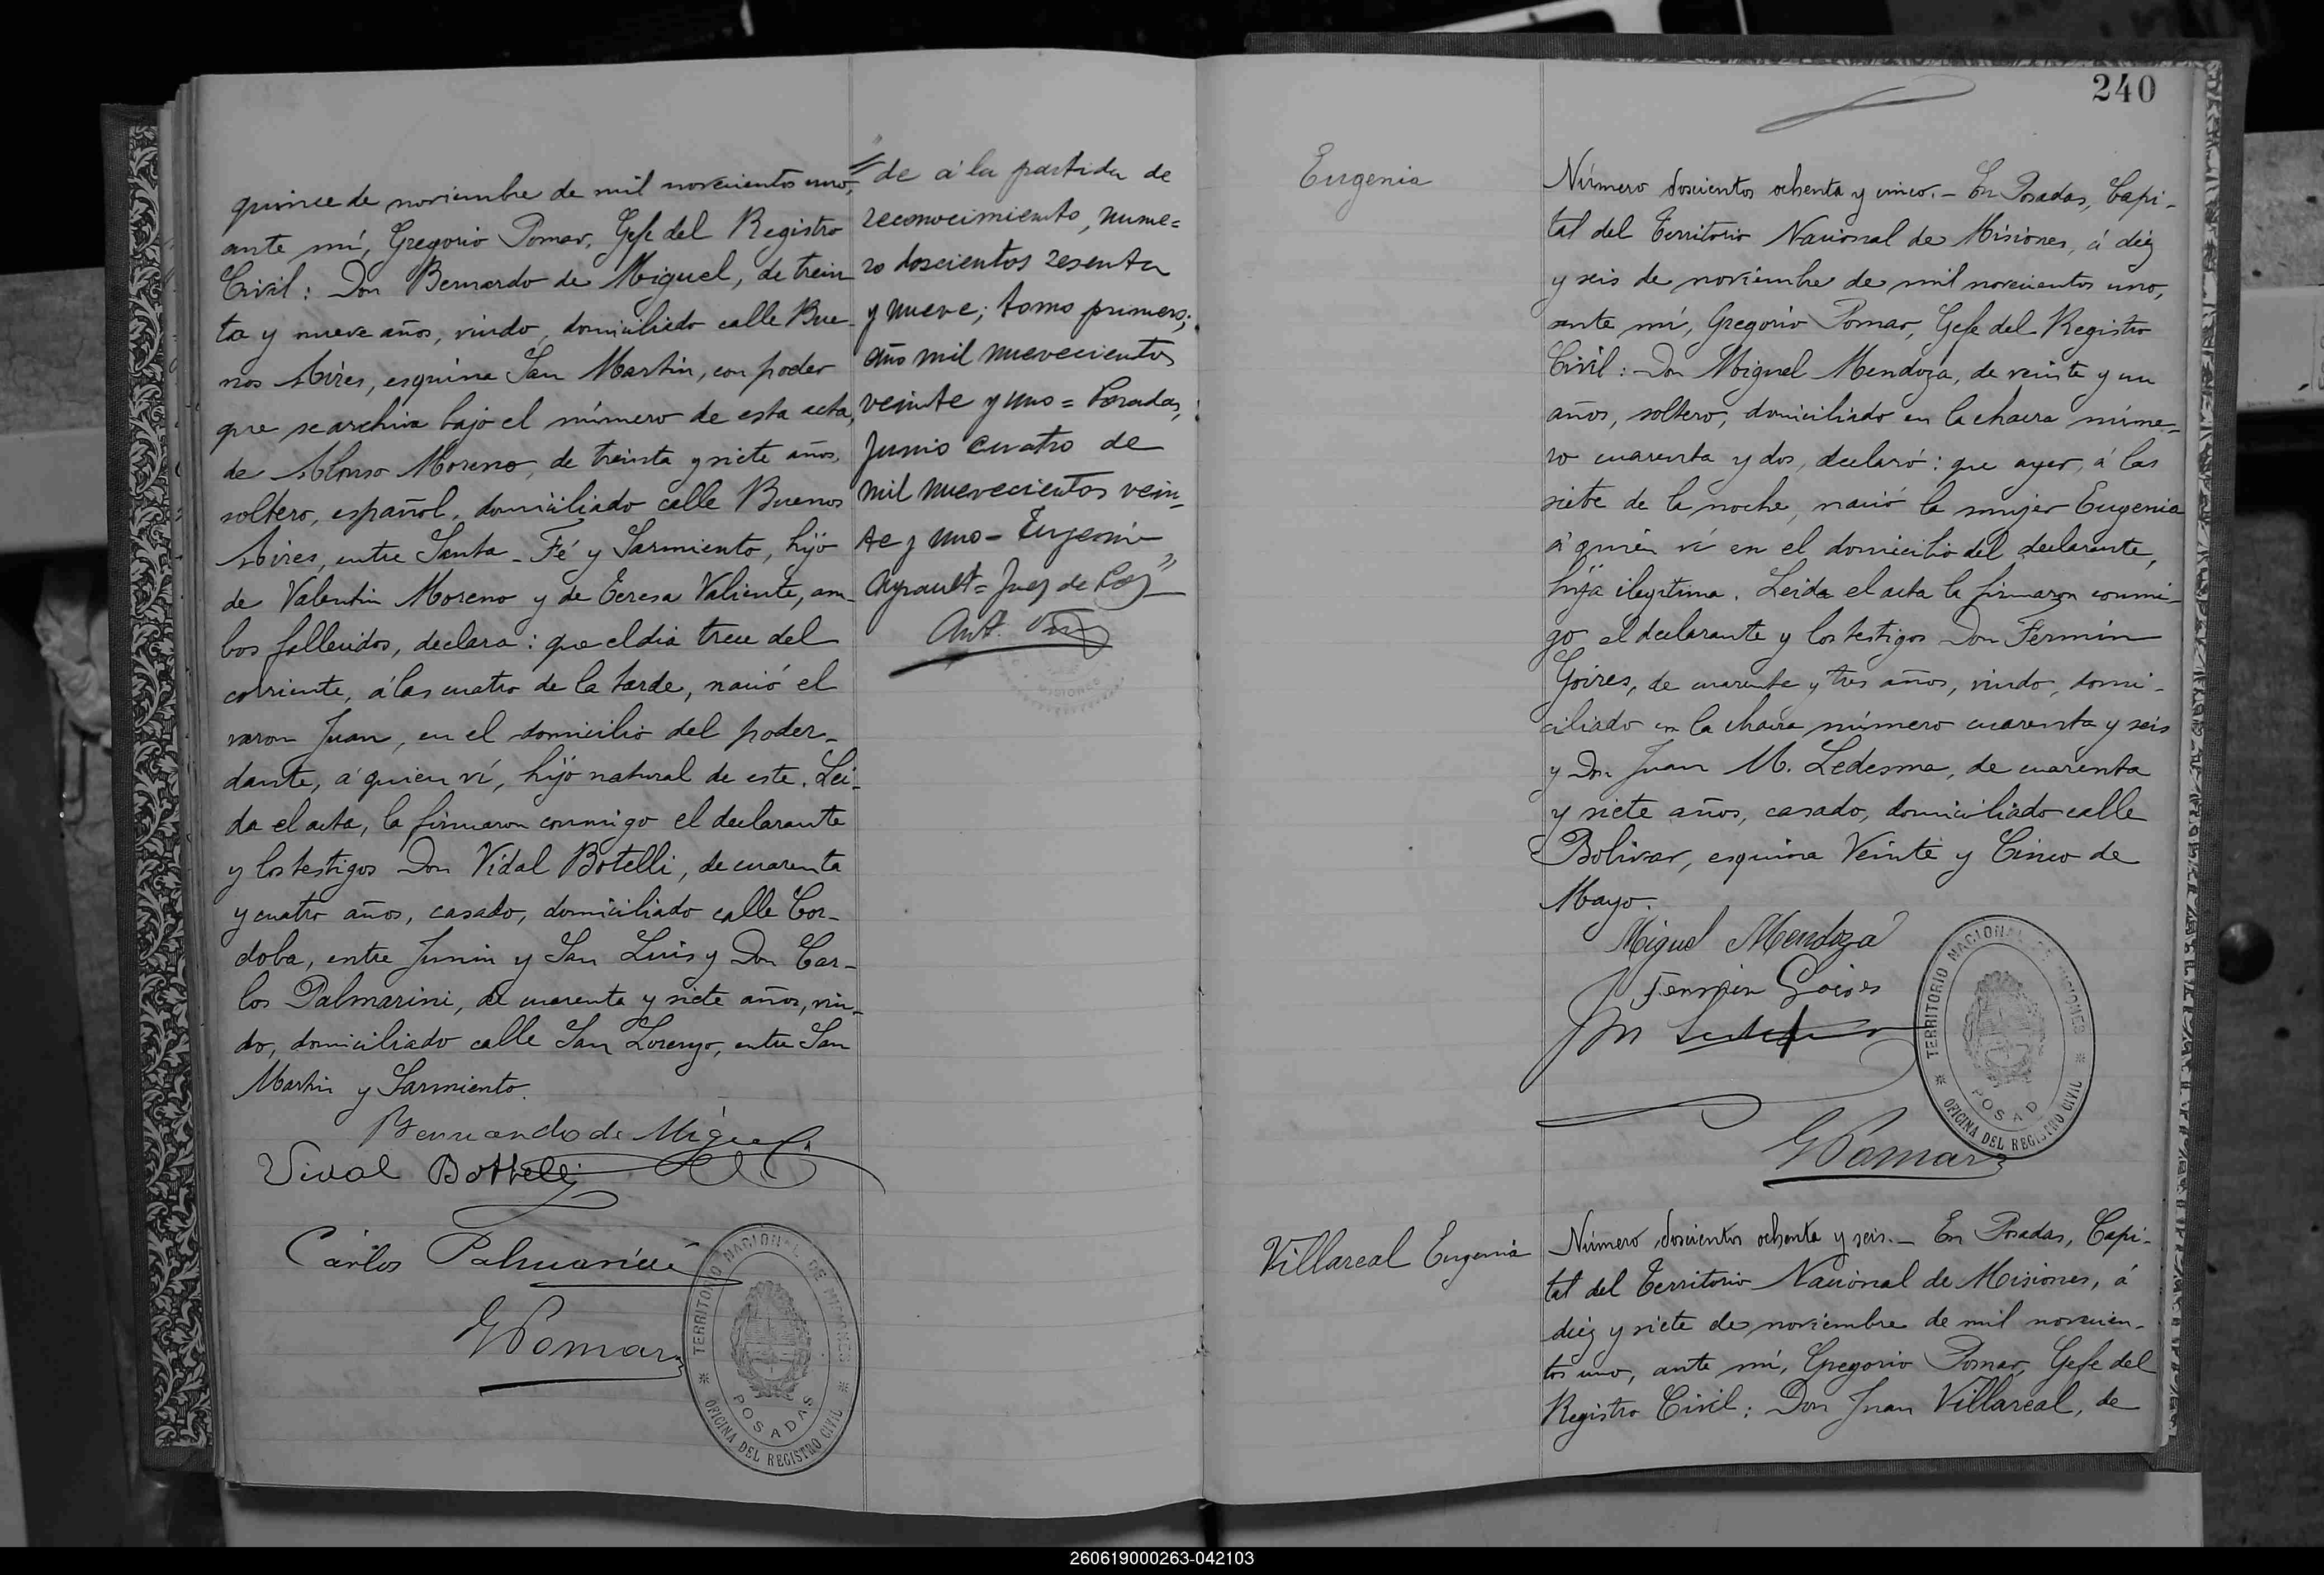 quince de noviembre de mil novecientos uno,
ante mí, Gregorio Pomar, Gefe del Registro
Civil: Don Bernardo de Miguel, de trein
ta y nueve años, viudo, domiciliado calle Bue-
nos Aires, esquina San Martin, con poder
que se archiva bajo el número de esta acta,
de Alonso Moreno, de treinta y siete años,
soltero, español, domiciliado calle Buenos
Aires, entre Santa-Fé y Sarmiento, hijo
de Valentin Moreno y de Teresa Valiente, am-
bos fallecidos, declara: que el dia trece del
corriente, á las cuatro de la tarde, nació el
varon Juan, en el domicilio del poder-
dante, á quien ví, hijo natural de este. Lei-
da el acta, la firmaron conmigo el declarante
y los testigos Don Vidal Botelli, de cuarenta
y cuatro años, casado, domiciliado calle Cor-
doba, entre Junin y San Luis y Don Car-
los Palmarini, de cuarenta y siete años, viu-
do, domiciliado calle San Lorenzo, entre San
Martin y Sarmiento.
Bernardo de Miguel
Vidal Bottelli
Cárlos Palmarini
G Pomar
TERRITORIO NACIONAL DE MISIONES
POSADAS
OFICINA DEL REGISTRO CIVIL
"de á la partida de
reconocimiento, nume=
ro doscientos sesenta
y nueve; tomo primero;
año mil nuevecientos
veinte y uno = Posadas,
Junio cuatro de
mil nuevecientos vein-
te y uno = Eugenio
Ayrault = Juez de Paz"
MISIONES
240
Eugenia
Número doscientos ochenta y cinco.- En Posadas, Capi-
tal del Territorio Nacional de Misiones, á diez
y seis de noviembre de mil novecientos uno,
ante mí, Gregorio Pomar, Gefe del Registro
Civil: Don Miguel Mendoza, de veinte y un
años, soltero, domiciliado en la chacra núme-
ro cuarenta y dos, declaró: que ayer, á las
siete de la noche, nació la mujer Eugenia
á quien ví en el domicilio del declarante,
hija ilegitima. Leida el acta la firmaron conmi-
go el declarante y los testigos Don Fermin
Goires, de cuarenta y tres años, viudo, domi-
ciliado en la chacra número cuarenta y seis
y Don Juan M. Ledesma, de cuarenta
y siete años, casado, domiciliado calle
Bolivar, esquina Veinte y Cinco de
Mayo.
Miguel Mendoza
Fermin Goires
TERRITORIO NACIONAL DE MISIONES
POSAD
OFICINA DEL REGISTRO CIVIL
G Pomar
Villareal Eugenia
Número doscientos ochenta y seis.- En Posadas, Capi-
tal del Territorio Nacional de Misiones, á
diez y siete de noviembre de mil novecien-
tos uno, ante mí, Gregorio Pomar, Gefe del
Registro Civil: Don Juan Villareal, de
260619000263-042103